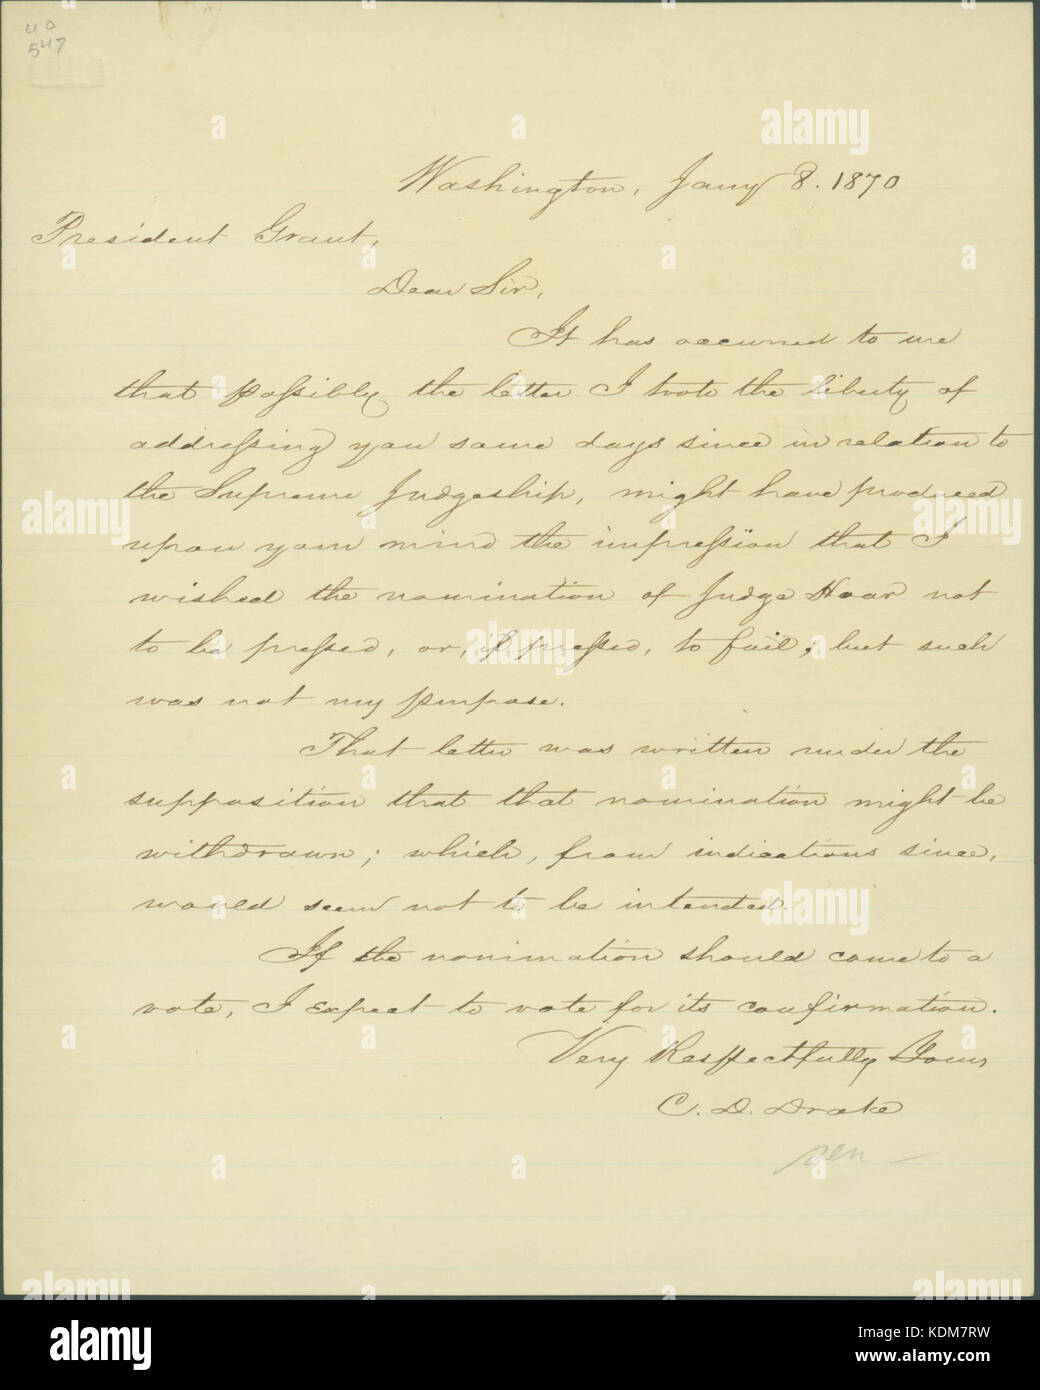 40
547
Washington, Jany 8. 1870
President Grant,
Dear Sir,
It has occurred to me
that possibly the letter I took the liberty of
addressing you some days since in relation to
the Supreme Judgeship, might have produced
upon your mind the impression that I
wished the nomination of Judge Hoar not
to be pressed, or, if pressed, to fail; but such
was not my purpose.
That letter was written under the
supposition that that nomination might be
withdrawn; which, from indications since,
would seem not to be intended.
If the nomination should come to a
vote, I expect to vote for its confirmation.
Very Respectfully Yours
C. D. Drake
Sen
alamy
Image ID: KDM7RW
www.alamy.com